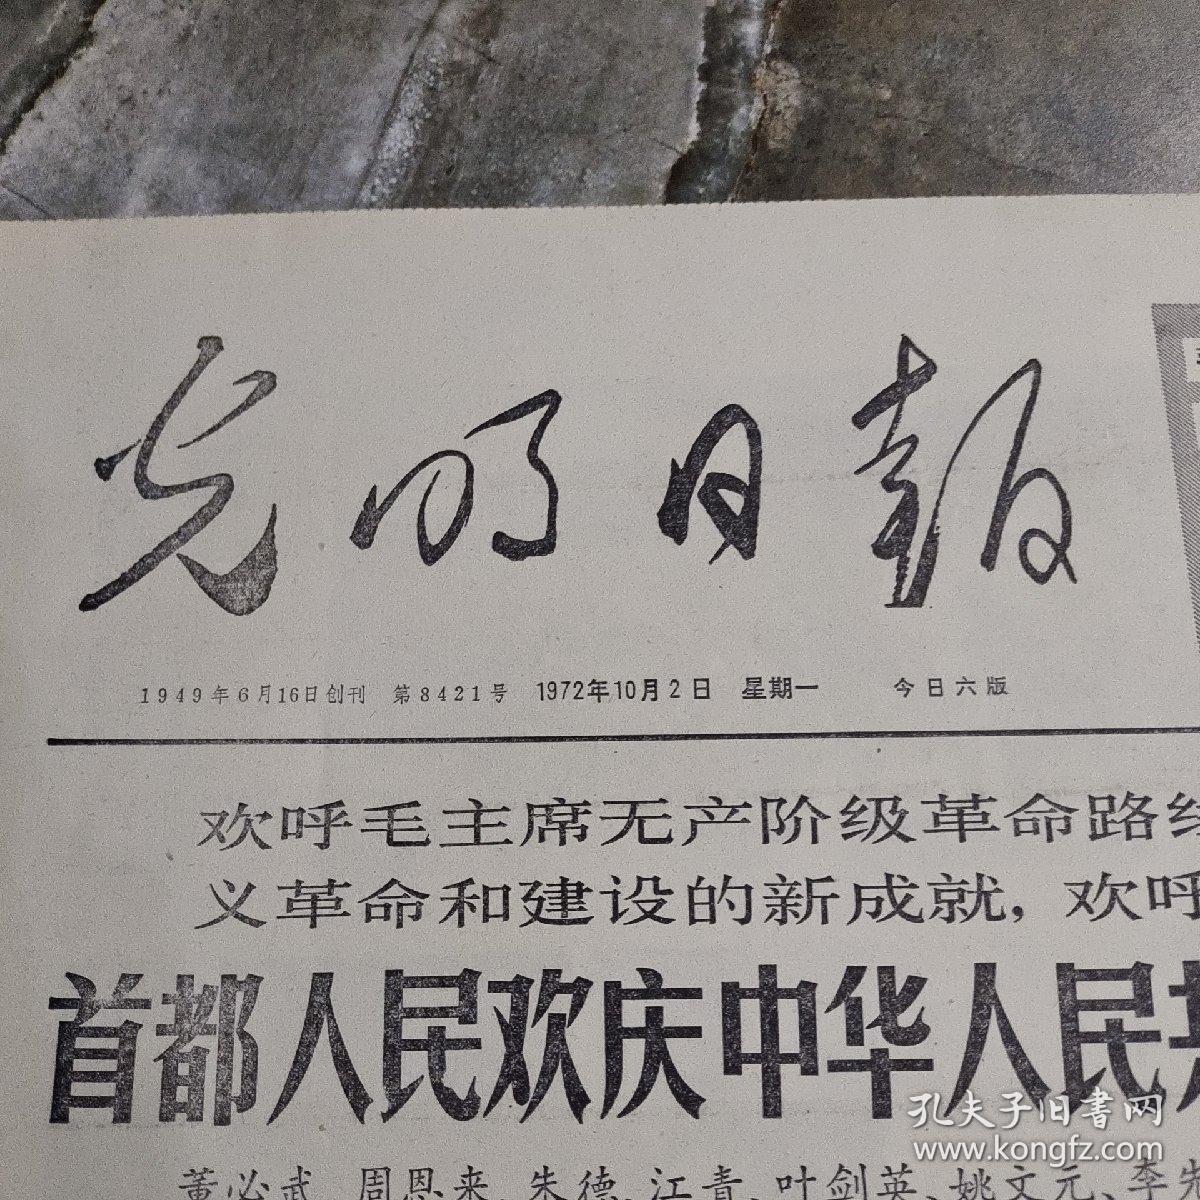 光明日报
1949年6月16日创刊 第8421号 1972年10月2日 星期一 今日六版
欢呼毛主席无产阶级革命路线
义革命和建设的新成就，欢呼
首都人民欢庆中华人民共
董必武、周恩来、朱德、江青、叶剑英、姚文元、李先
孔夫子旧书网
www.kongfz.com